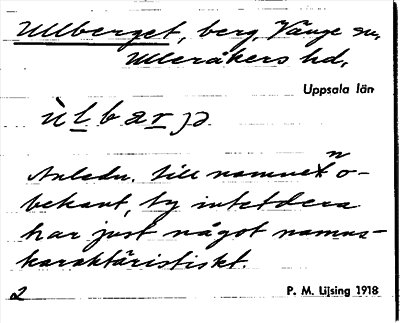 Ullberget, berg Vänge sn,
Ulleråkers hd,
Uppsala län
ùlbærjə
Anledn. till namnen o-
bekant, ty intetdera
har just något namns-
karaktäristiskt.
2 P. M. Lijsing 1918